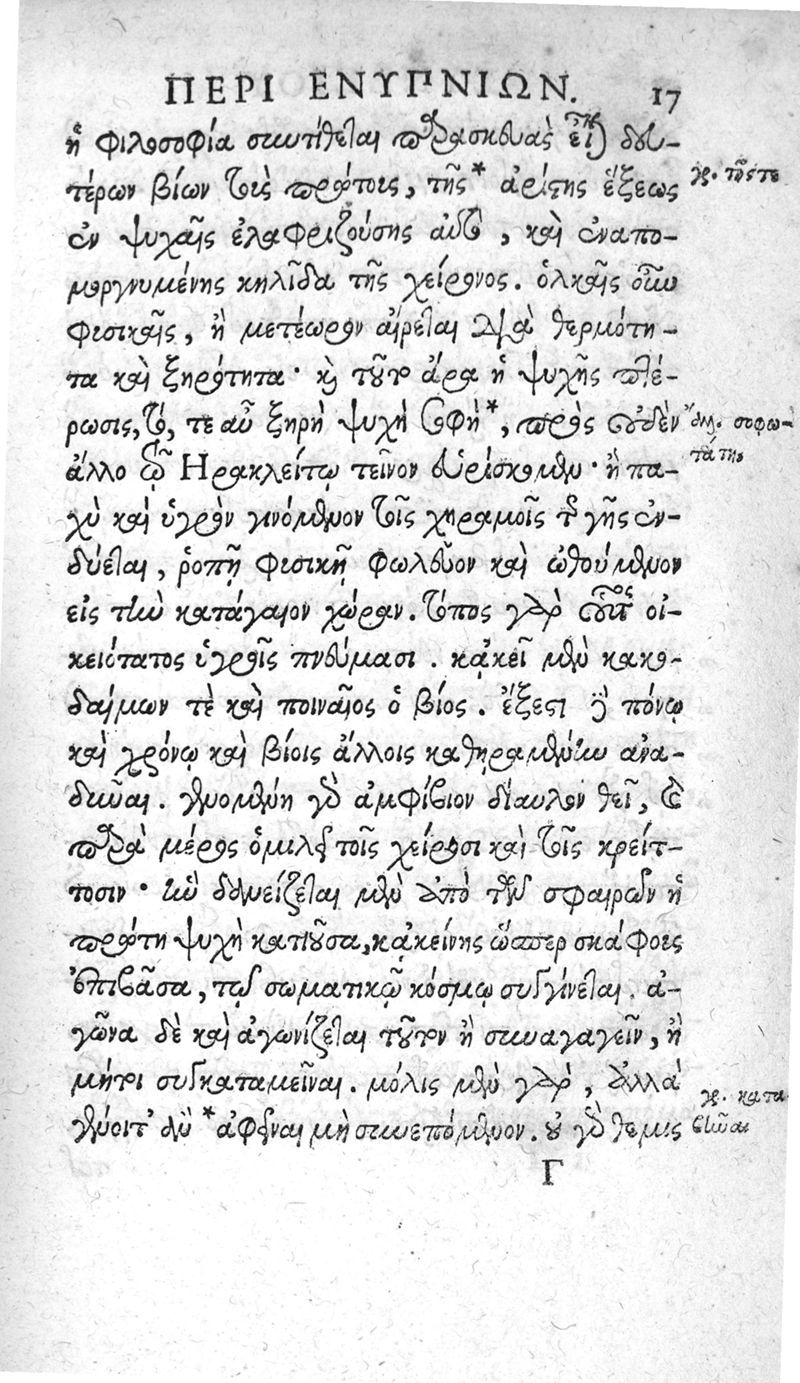 ΠΕΡΙ ΕΝΥΠΝΙΩΝ. 17
ἡ φιλοσοφία συντίθεται παρασκευὰς εἶναι δευ-
τέρων βίων τοὺς πρώτους, τῆς* ἀρίστης ἕξεως
ἐν ψυχαῖς ἐλαφριζούσης αὐτὸ, καὶ ἐναπο-
μοργνυμένης κηλῖδα τῆς χείρονος. ὁλκαῖς οὖν
φυσικαῖς, ἢ μετέωρον αἴρεται διὰ θερμότη-
τα καὶ ξηρότητα· καὶ τοῦτο ἄρα ἡ ψυχῆς πτέ-
ρωσις, τό, τε αὖ ξηρὴ ψυχὴ σοφὴ*, πρὸς οὐδὲν
ἄλλο τῷ Ἡρακλείτῳ τεῖνον εὑρίσκομεν· ἢ πα-
χὺ καὶ ὑγρὸν γινόμενον τοῖς χηραμοῖς τῆς γῆς ἐν-
δύεται, ῥοπῇ φυσικῇ φωλεῦον καὶ ὠθούμενον
εἰς τὴν κατάγαιον χώραν. τόπος γὰρ οὗτος οἰ-
κειότατος ὑγροῖς πνεύμασι. κἀκεῖ μὲν κακο-
δαίμων τὲ καὶ ποιναῖος ὁ βίος. ἔξεστι δὲ πόνῳ
καὶ χρόνῳ καὶ βίοις ἄλλοις καθηραμένην ἀνα-
δῦναι. γενομένη γὰρ ἀμφίβιον δίαυλον θεῖ, καὶ
παρὰ μέρος ὁμιλεῖ τοῖς χείροσι καὶ τοῖς κρείτ-
τοσιν· ἣν δανείζεται μὲν ἀπὸ τῶν σφαιρῶν ἡ
πρώτη ψυχὴ κατιοῦσα, κἀκείνης ὥσπερ σκάφους
ἐπιβᾶσα, τῷ σωματικῷ κόσμῳ συγγίνεται. ἀ-
γῶνα δὲ καὶ ἀγωνίζεται τοῦτον ἢ συναγαγεῖν, ἢ
μήτοι συγκαταμεῖναι. μόλις μὲν γὰρ, ἀλλὰ
γένοιτ' ἂν *ἀφεῖναι μὴ συνεπόμενον. οὐ γὰρ θέμις
Γ
γρ. τοῖς τε
δηλ. σοφω-
τάτη,
γρ. κατα
βιῶναι